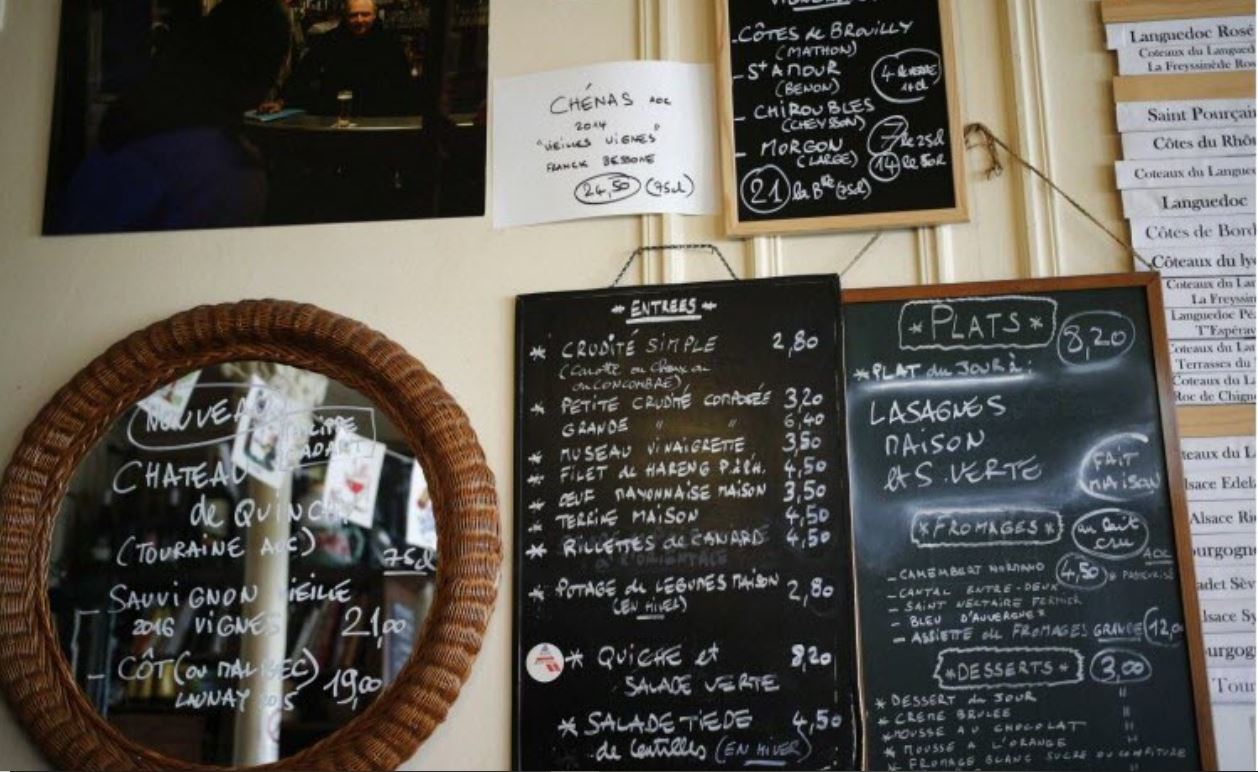 CHÉNAS AOC
2014
"VIEILLES VIGNES"
FRANCK BESSONE
24,50 (75cl)
- CÔTES de BROUILLY
(MATHON)
- St AMOUR
(BENON)
4 le verre
14cl
- CHIROUBLES
(CHEYSSON)
- MORGON
(LARGE)
7 le 25cl
14 le 50cl
21 la Blle (75cl)
Languedoc Rosé
Coteaux du Langued
La Freyssinède Ros
Saint Pourçai
Côtes du Rhô
Coteaux du Langue
Languedoc
Côtes de Bord
Côteaux du ly
Coteaux du La
La Freyssin
Languedoc Pé
T'Espéra
Coteaux du La
Terrasses du
Coteaux du L
Roc de Chign
teaux du L
lsace Edel
Alsace Ri
ourgogn
adet Sèv
lsace Sy
ourgog
Tour
NOUVEA
CHATEAU
de QUINCAY
(TOURAINE AOC)
75cl
- SAUVIGNON VIEILLE
2016 VIGNES 21,00
- CÔT (OU MALBEC) 19,00
LAUNAY 2015
* ENTREES *
* CRUDITÉ SIMPLE 2,80
(Carotte ou Choux ou
ou CONCOMBRE)
* PETITE CRUDITÉ COMPOSÉE 3,20
GRANDE " " 6,40
* MUSEAU VINAIGRETTE 3,50
* FILET de HARENG P.à.H. 4,50
* ŒUF MAYONNAISE MAISON 3,50
* TERRINE MAISON 4,50
* RILLETTES de CANARD 4,50
* POTAGE de LEGUMES MAISON 2,80
(EN HIVER)
* QUICHE et 8,20
SALADE VERTE
* SALADE TIEDE 4,50
de lentilles (EN HIVER)
* PLATS * 8,20
* PLAT du JOUR à :
LASAGNES
MAISON
et S. VERTE
FAIT
MAISON
* FROMAGES * au lait
cru
- CAMEMBERT NORMAND 4,50 AOC
- CANTAL ENTRE-DEUX
- SAINT NECTAIRE FERMIER
- BLEU D'AUVERGNE
- ASSIETTE de FROMAGES GRANDE 12,00
* DESSERTS * 3,00
* DESSERT du JOUR "
* CREME BRULEE "
* MOUSSE AU CHOCOLAT "
* MOUSSE A L'ORANGE "
* FROMAGE BLANC SUCRE OU CONFITURE